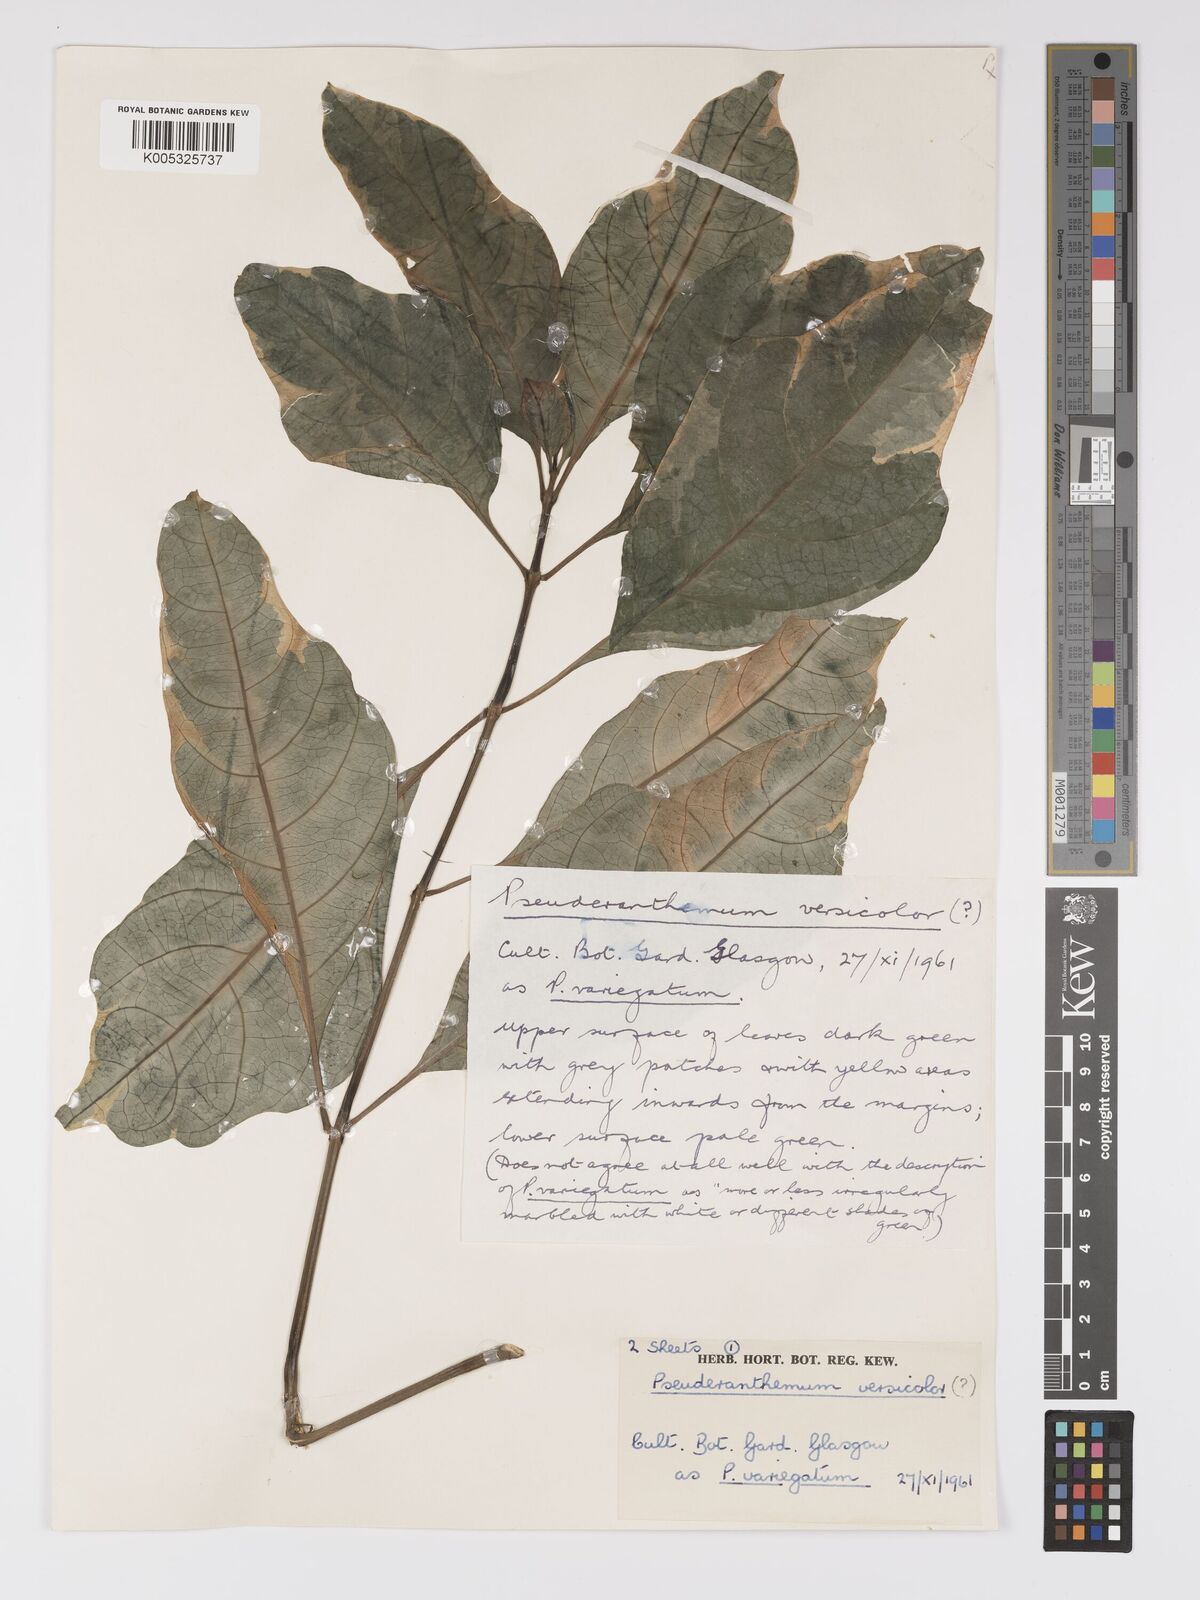 ROYAL BOTANIC GARDENS KEW
K005325737
Pseuderanthemum versicolor (?)
Cult. Bot. Gard. Glasgow, 27/XI/1961
as P. variegatum.
Upper surface of leaves dark green
with grey patches & with yellow areas
extending inwards from the margins;
lower surface pale green.
(Does not agree at all well with the description
of P. variegatum as "more or less irregularly
marbled with white or different shades of
green)
2 Sheets ①
HERB. HORT. BOT. REG. KEW.
Pseuderanthemum versicolor (?)
Cult. Bot. Gard. Glasgow
as P. variegatum 27/XI/1961
inches
Density
Don Williams
centimeters
M001279
Royal Botanic Gardens
Kew
10
9
8
7
6
5
4
3
2
1
0
cm
copyright reserved